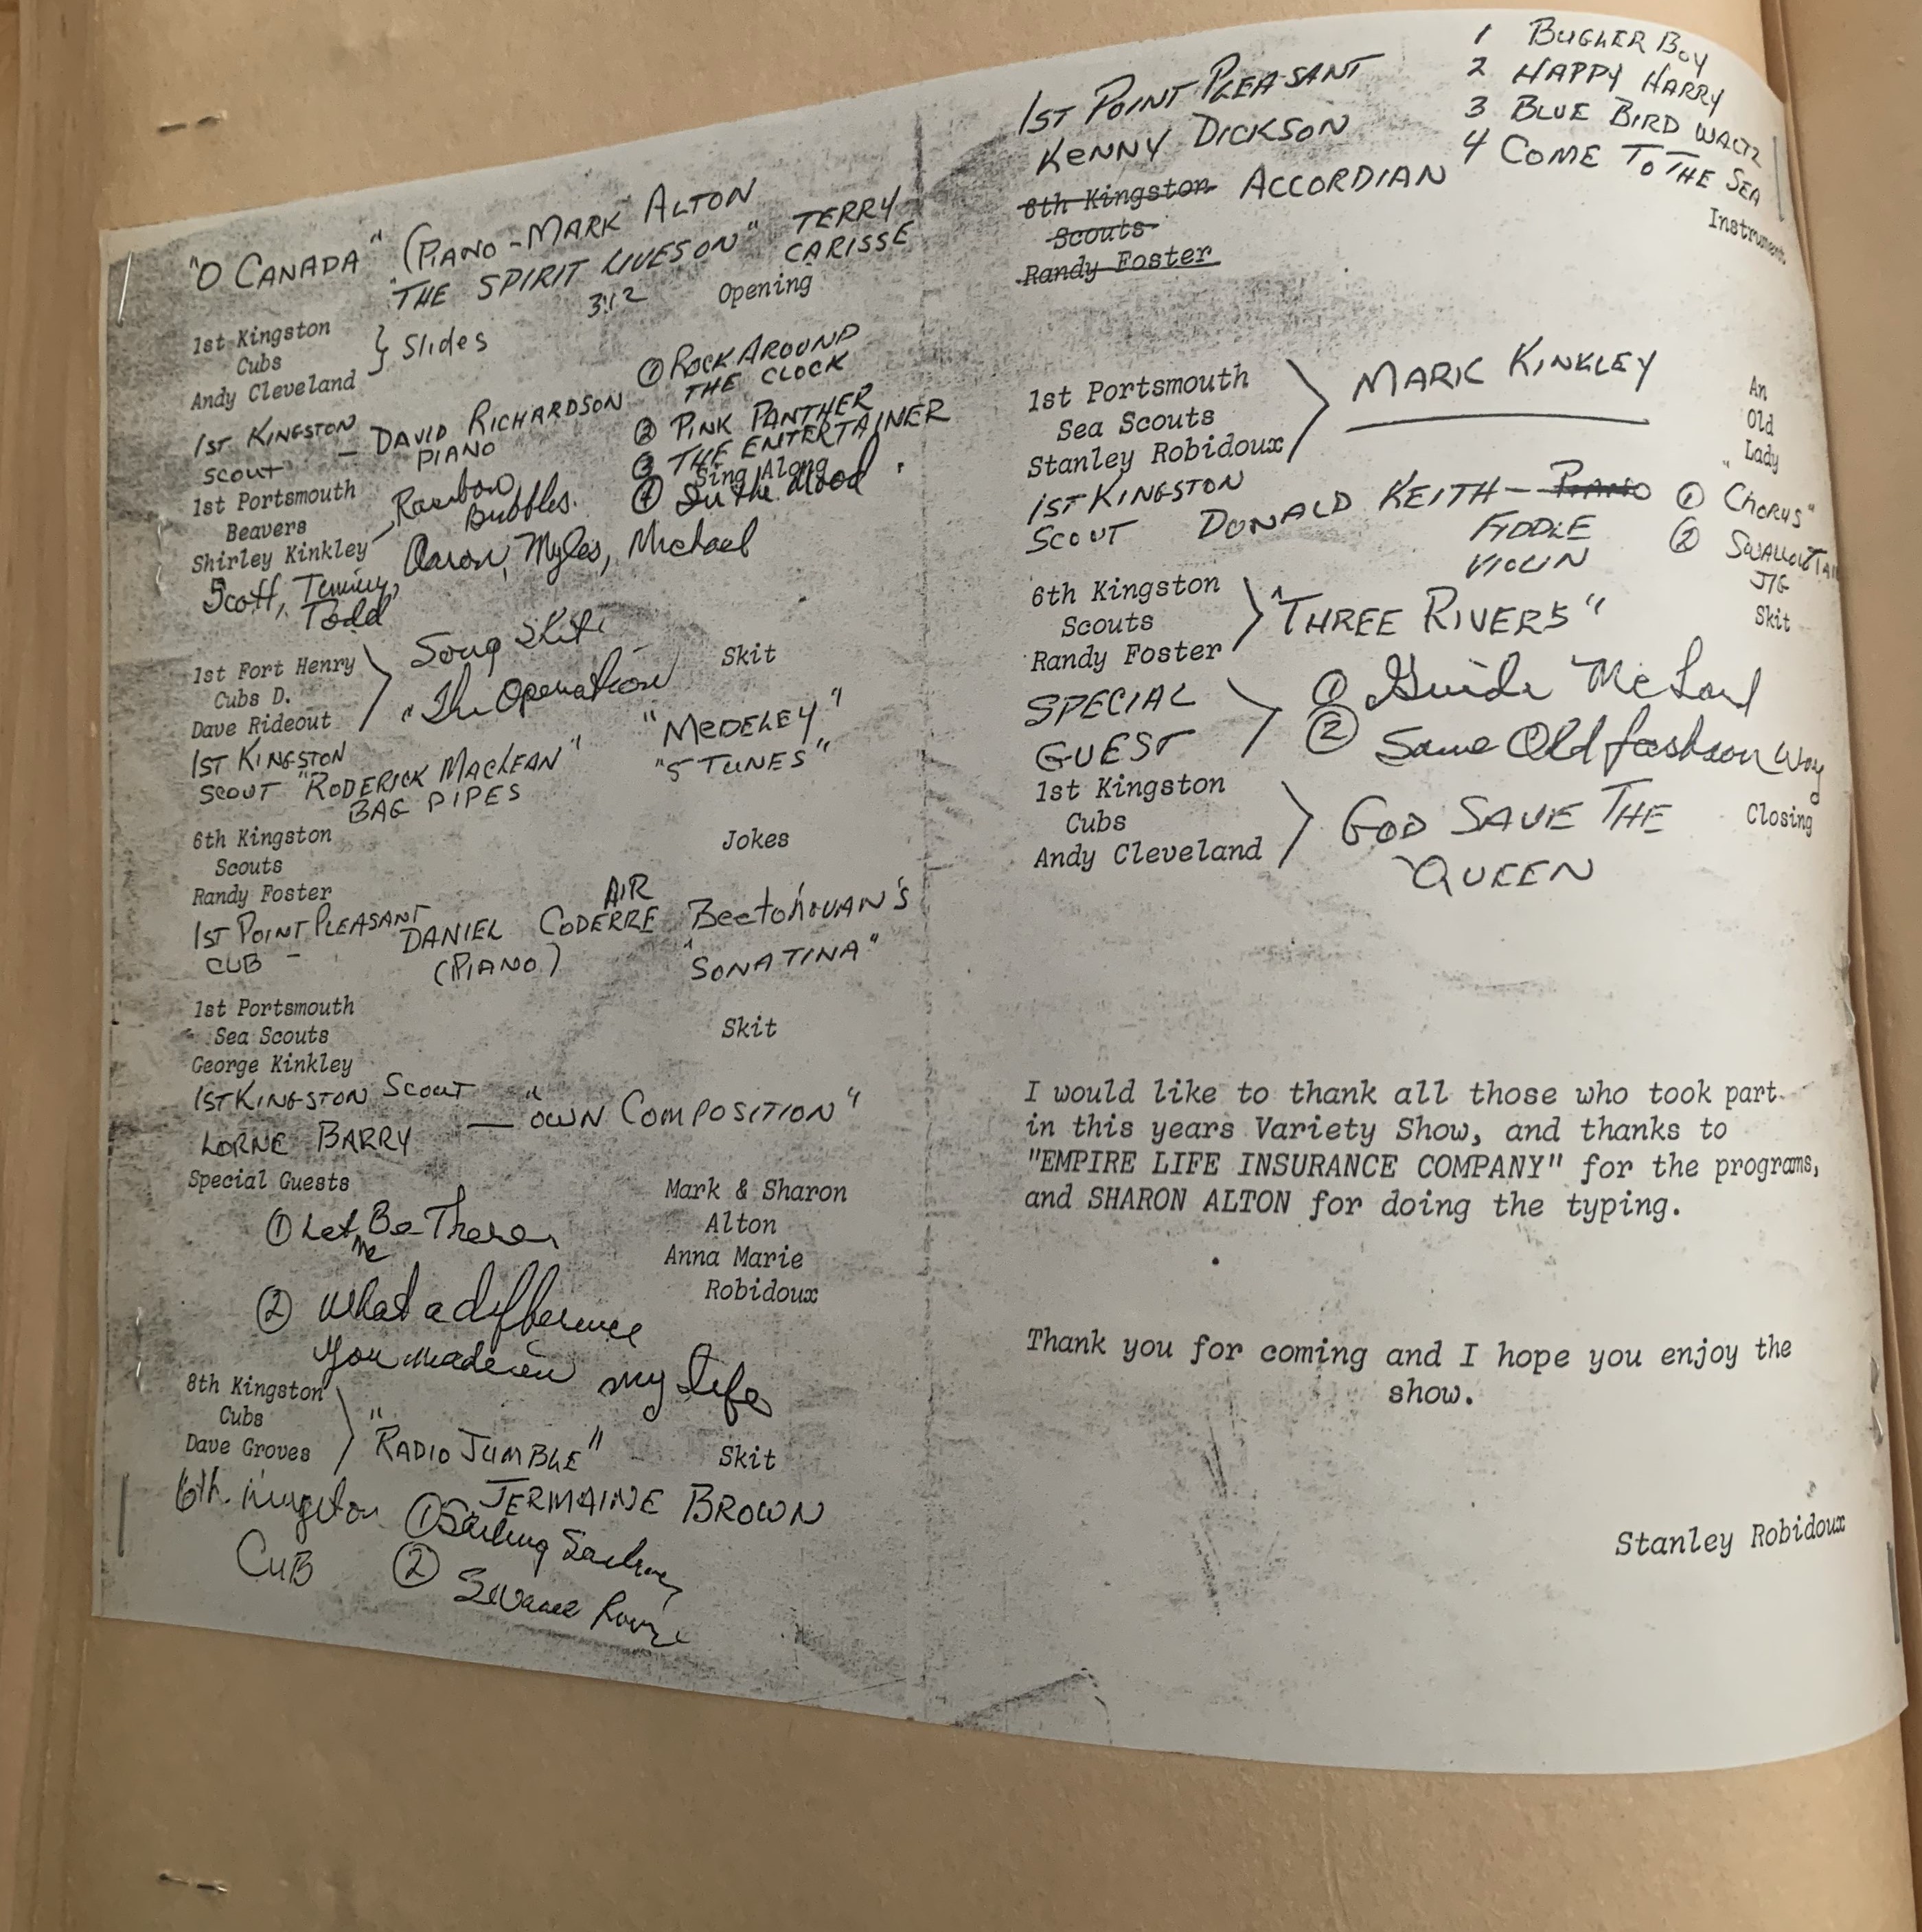 "O CANADA" (PIANO - MARK ALTON
"THE SPIRIT LIVES ON" TERRY
CARISSE
3:12 Opening
1st Kingston
Cubs } Slides
Andy Cleveland
① ROCK AROUND
THE CLOCK
1ST KINGSTON
SCOUT - DAVID RICHARDSON
PIANO
② PINK PANTHER
③ THE ENTERTAINER
Sing Along
④ In the Mood
1st Portsmouth
Beavers
Shirley Kinkley
Rainbow
Bubbles.
Aaron, Myles, Michael
Scott, Timmy,
Todd
1st Fort Henry
Cubs D.
Dave Rideout
Song Skit
"The Operation
Skit
1ST KINGSTON
SCOUT "RODERICK MACLEAN"
BAG PIPES
"MEDELEY"
"5 TUNES"
6th Kingston
Scouts
Randy Foster
Jokes
1ST POINT PLEASANT
CUB - DANIEL CODERRE
(PIANO)
AIR
BeetoHOVAN'S
"SONATINA"
1st Portsmouth
Sea Scouts
George Kinkley
Skit
1ST KINGSTON SCOUT
LORNE BARRY — "OWN COMPOSITION"
Special Guests
Mark & Sharon
Alton
Anna Marie
Robidoux
① Let me Be There
② What a difference
you made in my life
8th Kingston
Cubs
Dave Groves
"RADIO JUMBLE"
Skit
6th Kingston
CUB
JERMAINE BROWN
① Sailing Sailing
②
1ST POINT PLEASANT
KENNY DICKSON
8th Kingston ACCORDIAN
Scouts
Randy Foster
1 BUGLER BOY
2 HAPPY HARRY
3 BLUE BIRD WALTZ
4 COME TO THE SEA
Instrument
1st Portsmouth
Sea Scouts
Stanley Robidoux
MARK KINKLEY
An
Old
Lady
1ST KINGSTON
SCOUT DONALD KEITH - PIANO
FIDDLE
VIOLIN
① "CHORUS"
② SWALLOWTAIL
JIG
6th Kingston
Scouts
Randy Foster
"THREE RIVERS"
Skit
SPECIAL
GUEST
①
② Same Old fashion Way
1st Kingston
Cubs
Andy Cleveland
GOD SAVE THE
QUEEN
Closing
I would like to thank all those who took part
in this years Variety Show, and thanks to
"EMPIRE LIFE INSURANCE COMPANY" for the programs,
and SHARON ALTON for doing the typing.
Thank you for coming and I hope you enjoy the
show.
Stanley Robidoux